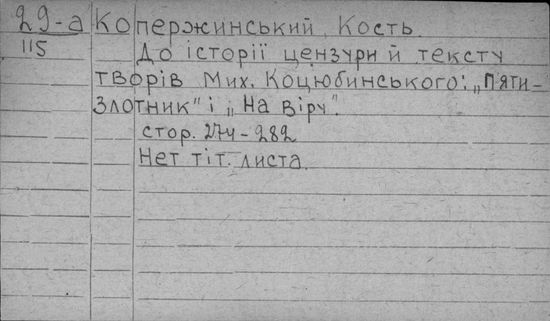 29-а Копержинський, Кость.
115
До історії цензури й тексту
творів Мих. Коцюбинського: „Пяти-
злотник" і „На віру".
стор. 274-282
Нет тіт. листа.